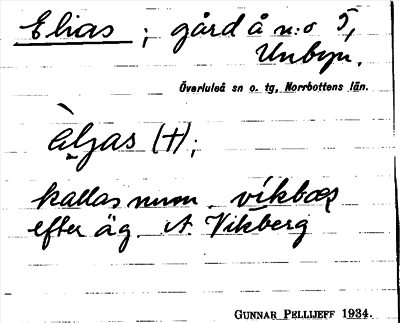 Elias ; gård å n:o 5,
Unbyn.
Överluleå sn o. tg, Norrbottens län.
èljas (†);
kallas numn. víkbæṣ
efter äg. A. Vikberg
GUNNAR PELLIJEFF 1934.